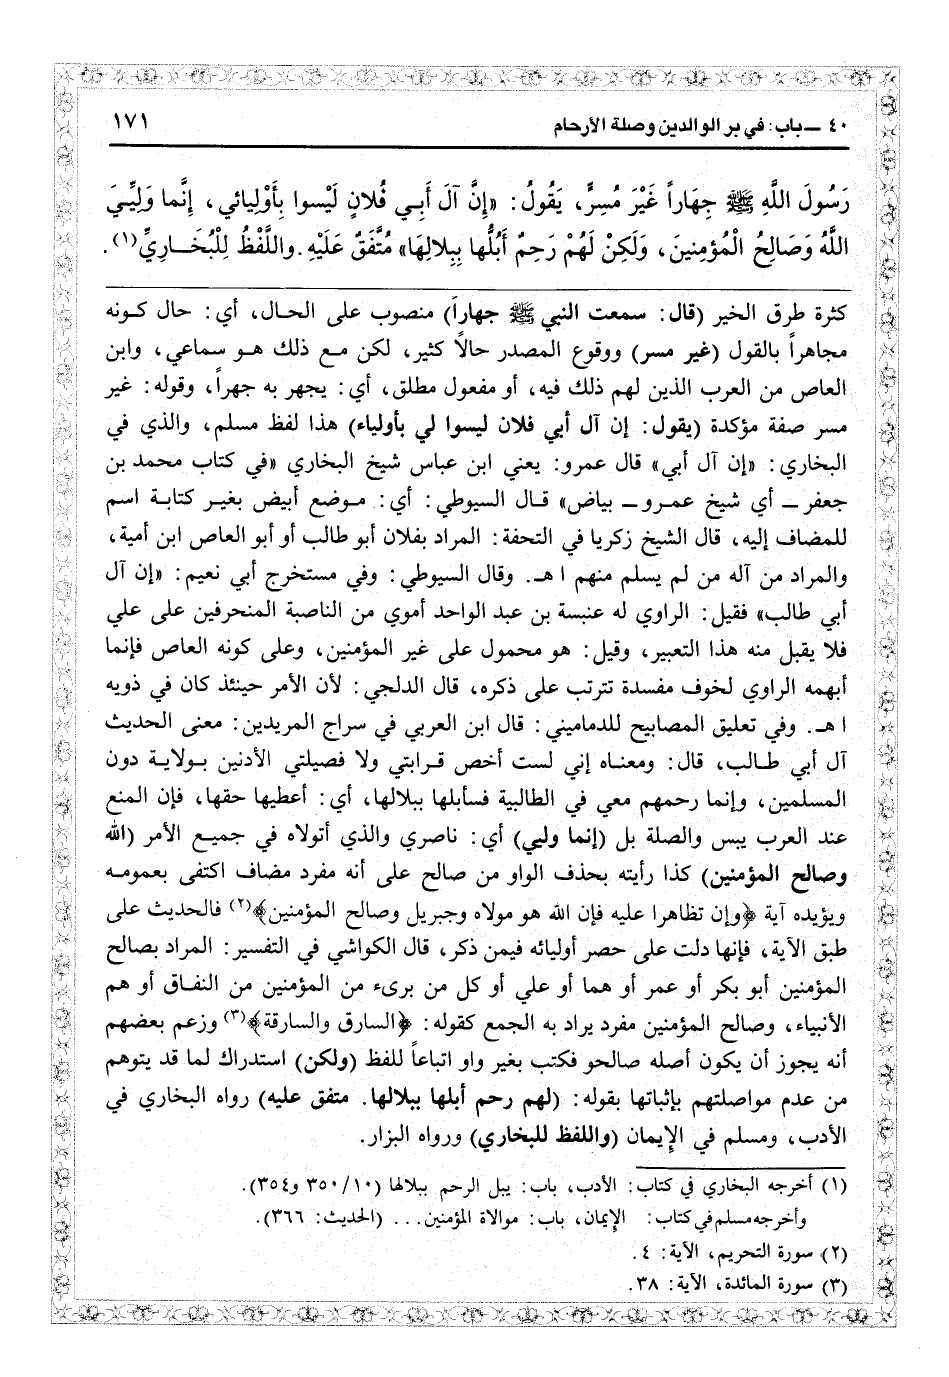 ٤٠ ــ باب: في بر الوالدين وصلة الأرحام
١٧١
رَسُولَ اللَّهِ ﷺ جِهَاراً غَيْرَ مُسِرٍّ، يَقُولُ: «إِنَّ آلَ أَبِي فُلَانٍ لَيْسوا بِأَوْلِيائي، إِنَّما وَلِيِّيَ
اللَّهُ وَصَالِحُ الْمُؤْمِنِينَ، وَلَكِنْ لَهُمْ رَحِمٌ أَبُلُّها بِبِلالِهَا» مُتَّفَقٌ عَلَيْهِ. واللَّفْظُ لِلْبُخَارِيِّ(١).
كثرة طرق الخير (قال: سمعت النبي ﷺ جهاراً) منصوب على الحال، أي: حال كونه
مجاهراً بالقول (غير مسر) ووقوع المصدر حالاً كثير، لكن مع ذلك هو سماعي، وابن
العاص من العرب الذين لهم ذلك فيه، أو مفعول مطلق، أي: يجهر به جهراً، وقوله: غير
مسر صفة مؤكدة (يقول: إن آل أبي فلان ليسوا لي بأولياء) هذا لفظ مسلم، والذي في
البخاري: «إن آل أبي» قال عمرو: يعني ابن عباس شيخ البخاري «في كتاب محمد بن
جعفر ــ أي شيخ عمرو ــ بياض» قال السيوطي: أي: موضع أبيض بغير كتابة اسم
للمضاف إليه، قال الشيخ زكريا في التحفة: المراد بفلان أبو طالب أو أبو العاص ابن أمية،
والمراد من آله من لم يسلم منهم ا هـ. وقال السيوطي: وفي مستخرج أبي نعيم: «إن آل
أبي طالب» فقيل: الراوي له عنبسة بن عبد الواحد أموي من الناصبة المنحرفين على علي
فلا يقبل منه هذا التعبير، وقيل: هو محمول على غير المؤمنين، وعلى كونه العاص فإنما
أبهمه الراوي لخوف مفسدة تترتب على ذكره، قال الدلجي: لأن الأمر حينئذ كان في ذويه
ا هـ. وفي تعليق المصابيح للدماميني: قال ابن العربي في سراج المريدين: معنى الحديث
آل أبي طالب، قال: ومعناه إني لست أخص قرابتي ولا فصيلتي الأدنين بولاية دون
المسلمين، وإنما رحمهم معي في الطالبية فسأبلها ببلالها، أي: أعطيها حقها، فإن المنع
عند العرب يبس والصلة بل (إنما وليي) أي: ناصري والذي أتولاه في جميع الأمر (الله
وصالح المؤمنين) كذا رأيته بحذف الواو من صالح على أنه مفرد مضاف اكتفى بعمومه
ويؤيده آية ﴿وإن تظاهرا عليه فإن الله هو مولاه وجبريل وصالح المؤمنين﴾(٢) فالحديث على
طبق الآية، فإنها دلت على حصر أوليائه فيمن ذكر، قال الكواشي في التفسير: المراد بصالح
المؤمنين أبو بكر أو عمر أو هما أو علي أو كل من برىء من المؤمنين من النفاق أو هم
الأنبياء، وصالح المؤمنين مفرد يراد به الجمع كقوله: ﴿السارق والسارقة﴾(٣) وزعم بعضهم
أنه يجوز أن يكون أصله صالحو فكتب بغير واو اتباعاً للفظ (ولكن) استدراك لما قد يتوهم
من عدم مواصلتهم بإثباتها بقوله: (لهم رحم أبلها ببلالها. متفق عليه) رواه البخاري في
الأدب، ومسلم في الإيمان (واللفظ للبخاري) ورواه البزار.
(١) أخرجه البخاري في كتاب: الأدب، باب: يبل الرحم ببلالها (٣٥٠/١٠ و٣٥٤).
وأخرجه مسلم في كتاب: الإيمان، باب: موالاة المؤمنين... (الحديث: ٣٦٦).
(٢) سورة التحريم، الآية: ٤.
(٣) سورة المائدة، الآية: ٣٨.